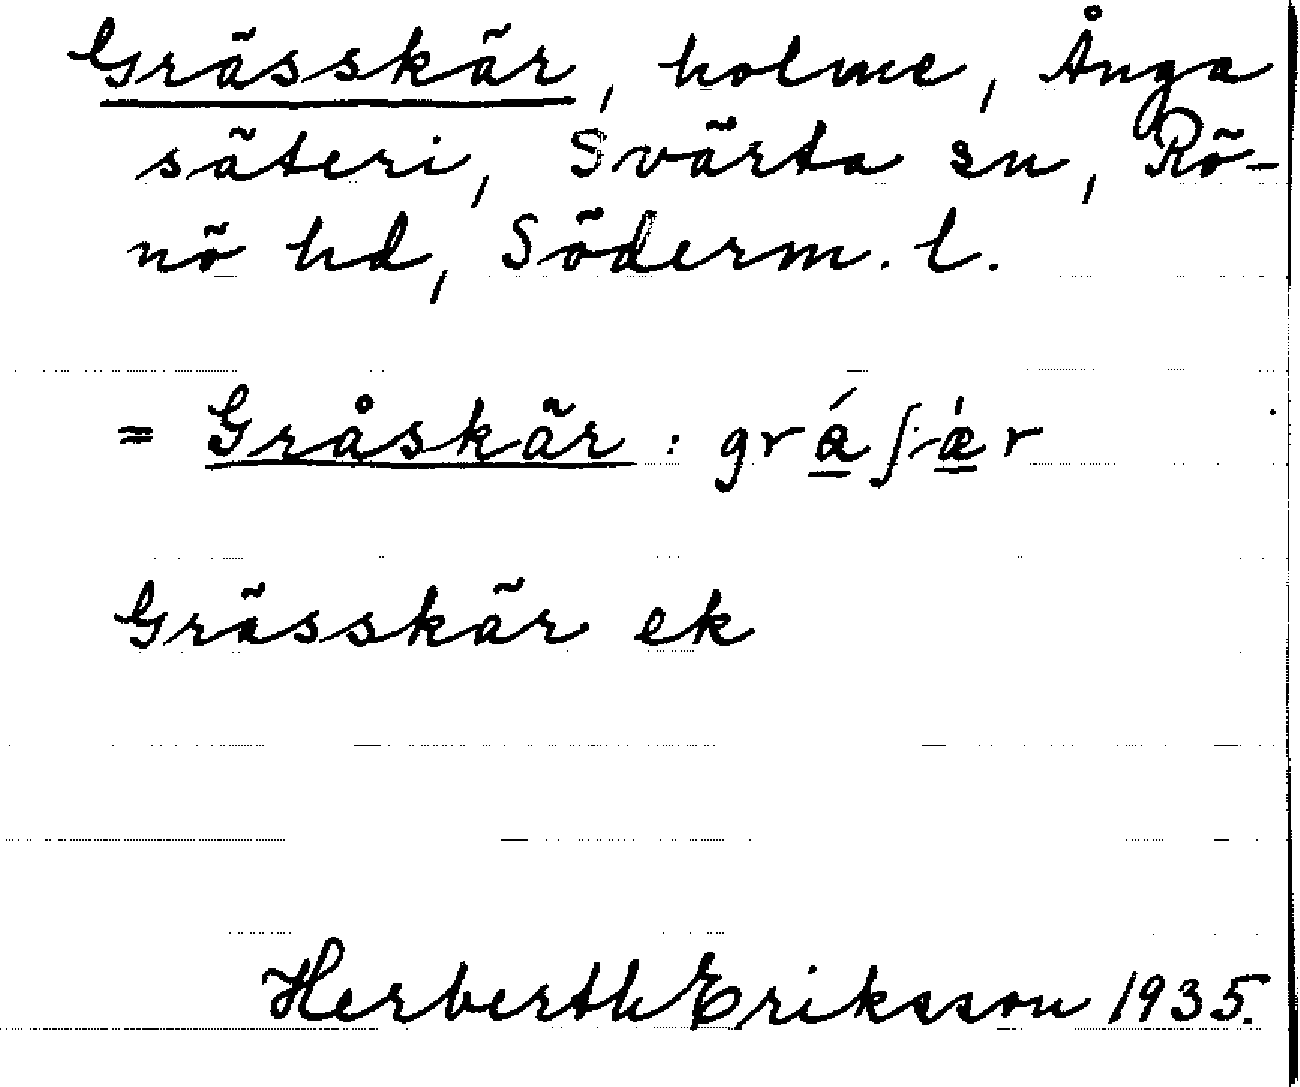 Grässkär, holme, Ånga
säteri, Svärta sn, Rö-
nö hd, Söderm. l.
= Gråskär : grá̱ʃæ̱̍r
Grässkär ek
Herberth Eriksson 1935.